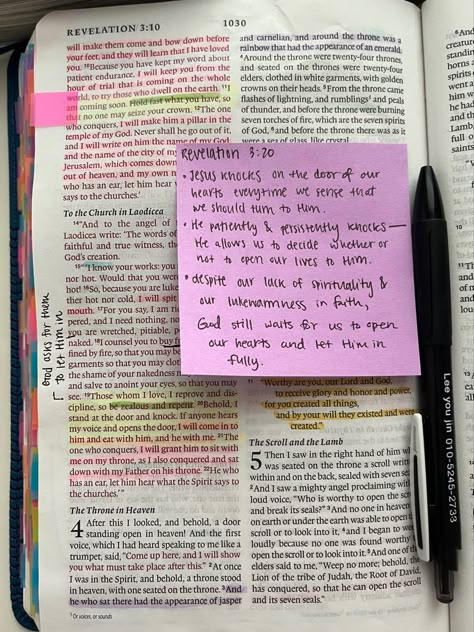 REVELATION 3:10
1030
will make them come and bow down before
your feet, and they will learn that I have loved
you. ¹⁰Because you have kept my word about
patient endurance, I will keep you from the
hour of trial that is coming on the whole
world, to try those who dwell on the earth. ¹¹I
am coming soon. Hold fast what you have, so
that no one may seize your crown. ¹²The one
who conquers, I will make him a pillar in the
temple of my God. Never shall he go out of it,
and I will write on him the name of my God
and the name of the city of my
Jerusalem, which comes down
out of heaven, and my own n
who has an ear, let him hear
says to the churches.'
To the Church in Laodicea
¹⁴"And to the angel of
Laodicea write: 'The words of
faithful and true witness, the
God's creation.
¹⁵"'I know your works: you
nor hot. Would that you were
hot! ¹⁶So, because you are luke
ther hot nor cold, I will spit
mouth. ¹⁷For you say, I am ri
pered, and I need nothing, no
you are wretched, pitiable, p
naked. ¹⁸I counsel you to buy f
fined by fire, so that you may b
garments so that you may clot
the shame of your nakedness
and salve to anoint your eyes, so that you may
see. ¹⁹Those whom I love, I reprove and dis-
cipline, so be zealous and repent. ²⁰Behold, I
stand at the door and knock. If anyone hears
my voice and opens the door, I will come in to
him and eat with him, and he with me. ²¹The
one who conquers, I will grant him to sit with
me on my throne, as I also conquered and sat
down with my Father on his throne. ²²He who
has an ear, let him hear what the Spirit says to
the churches.'"
The Throne in Heaven
4 After this I looked, and behold, a door
standing open in heaven! And the first
voice, which I had heard speaking to me like a
trumpet, said, "Come up here, and I will show
you what must take place after this." ²At once
I was in the Spirit, and behold, a throne stood
in heaven, with one seated on the throne. ³And
he who sat there had the appearance of jasper
¹ Or voices, or sounds
God asks for them
to let Him in
and carnelian, and around the throne was a
rainbow that had the appearance of an emerald.
⁴Around the throne were twenty-four thrones,
and seated on the thrones were twenty-four
elders, clothed in white garments, with golden
crowns on their heads. ⁵From the throne came
flashes of lightning, and rumblings¹ and peals
of thunder, and before the throne were burning
seven torches of fire, which are the seven spirits
of God, ⁶and before the throne there was as it
were a sea of glass, like crystal.
Revelation 3:20
• Jesus knocks on the door of our
hearts everytime we sense that
we should turn to Him.
• He patiently & persistently knocks —
He allows us to decide whether or
not to open our lives to Him.
• despite our lack of spirituality &
our lukewarmness in faith,
God still waits for us to open
our hearts and let Him in
fully.
"Worthy are you, our Lord and God,
to receive glory and honor and power,
for you created all things,
and by your will they existed and were
created."
The Scroll and the Lamb
5 Then I saw in the right hand of him w
was seated on the throne a scroll writ
within and on the back, sealed with seven se
²And I saw a mighty angel proclaiming with
loud voice, "Who is worthy to open the scro
and break its seals?" ³And no one in heaven
on earth or under the earth was able to open
scroll or to look into it, ⁴and I began to wee
loudly because no one was found worthy
open the scroll or to look into it. ⁵And one of
elders said to me, "Weep no more; behold, the
Lion of the tribe of Judah, the Root of David,
has conquered, so that he can open the scroll
and its seven seals."
Lee you jin 010-5245-2733